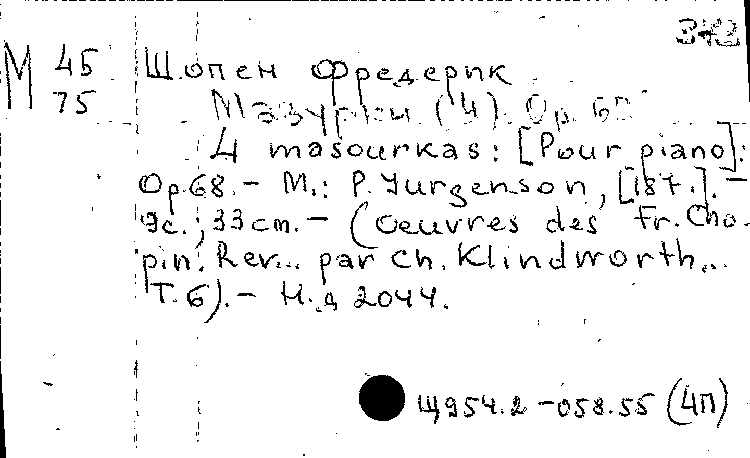 М 45 Шопен Фредерик
75 Мазурки (4). Ор. 68
4 masourkas: [Pour piano]:
Op.68. – М.: P. Jurgenson, [187.]. –
9с.; 33 cm. – (Oeuvres des Fr. Cho-
pin. Rev... par Ch. Klindworth...
Т. 6). – Н. д 2044.
Щ954.2-058.55 (4П)